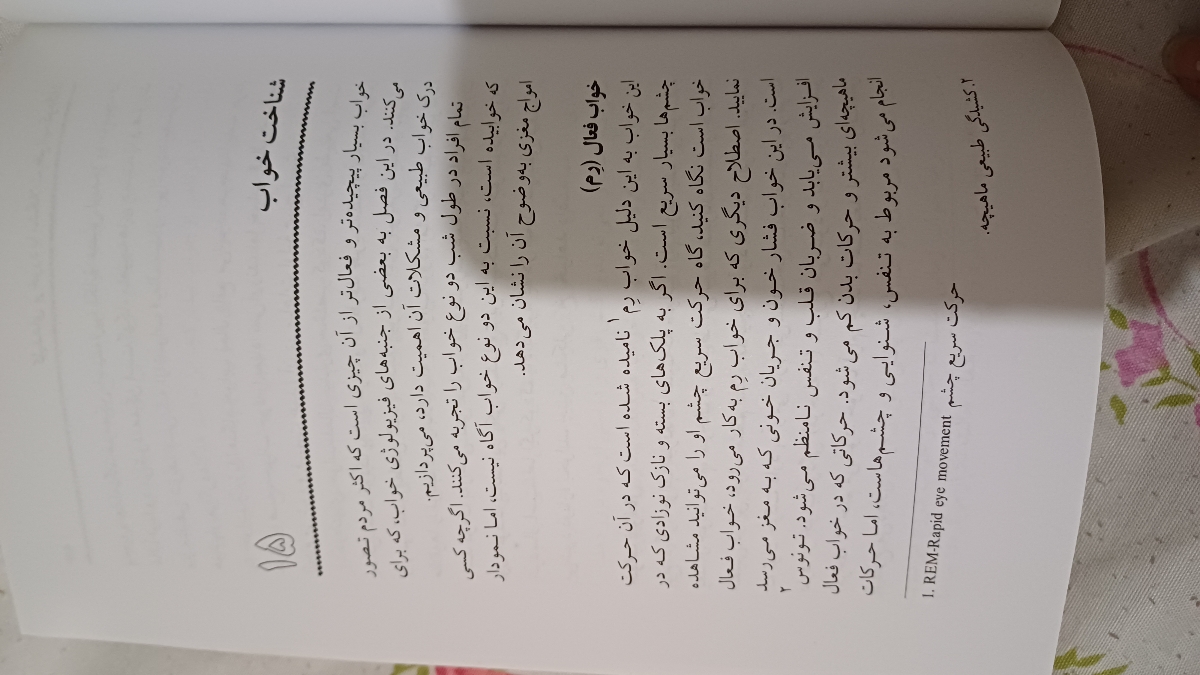 ۱۵
شناخت خواب
خواب بسیار پیچیده‌تر و فعال‌تر از آن چیزی است که اکثر مردم تصور
می‌کنند. در این فصل به بعضی از جنبه‌های فیزیولوژی خواب، که برای
درک خواب طبیعی و مشکلات آن اهمیت دارد، می‌پردازیم.
تمام افراد در طول شب دو نوع خواب را تجربه می‌کنند. اگرچه کسی
که خوابیده است، نسبت به این دو نوع خواب آگاه نیست، اما نمودار
امواج مغزی به‌وضوح آن را نشان می‌دهد.
خواب فعال (رِم)
این خواب به این دلیل خواب رِم ۱ نامیده شده است که در آن حرکت
چشم‌ها بسیار سریع است. اگر به پلک‌های بسته و نازک نوزادی که در
خواب است نگاه کنید، گاه حرکت سریع چشم او را می‌توانید مشاهده
نمایید. اصطلاح دیگری که برای خواب رِم به‌کار می‌رود، خواب فعال
است. در این خواب فشار خون و جریان خونی که به مغز می‌رسد
افزایش می‌یابد و ضربان قلب و تنفس نامنظم می‌شود. تونوس ۲
ماهیچه‌ای بیشتر و حرکات بدن کم می‌شود. حرکاتی که در خواب فعال
انجام می‌شود مربوط به تنفس، شنوایی و چشم‌هاست، اما حرکات
1. REM-Rapid eye movement حرکت سریع چشم
۲. کشیدگی طبیعی ماهیچه.